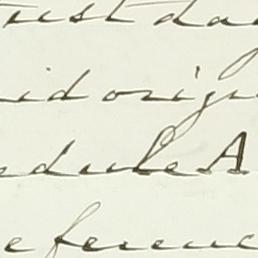 rest da
id origi
edule A
eferenc